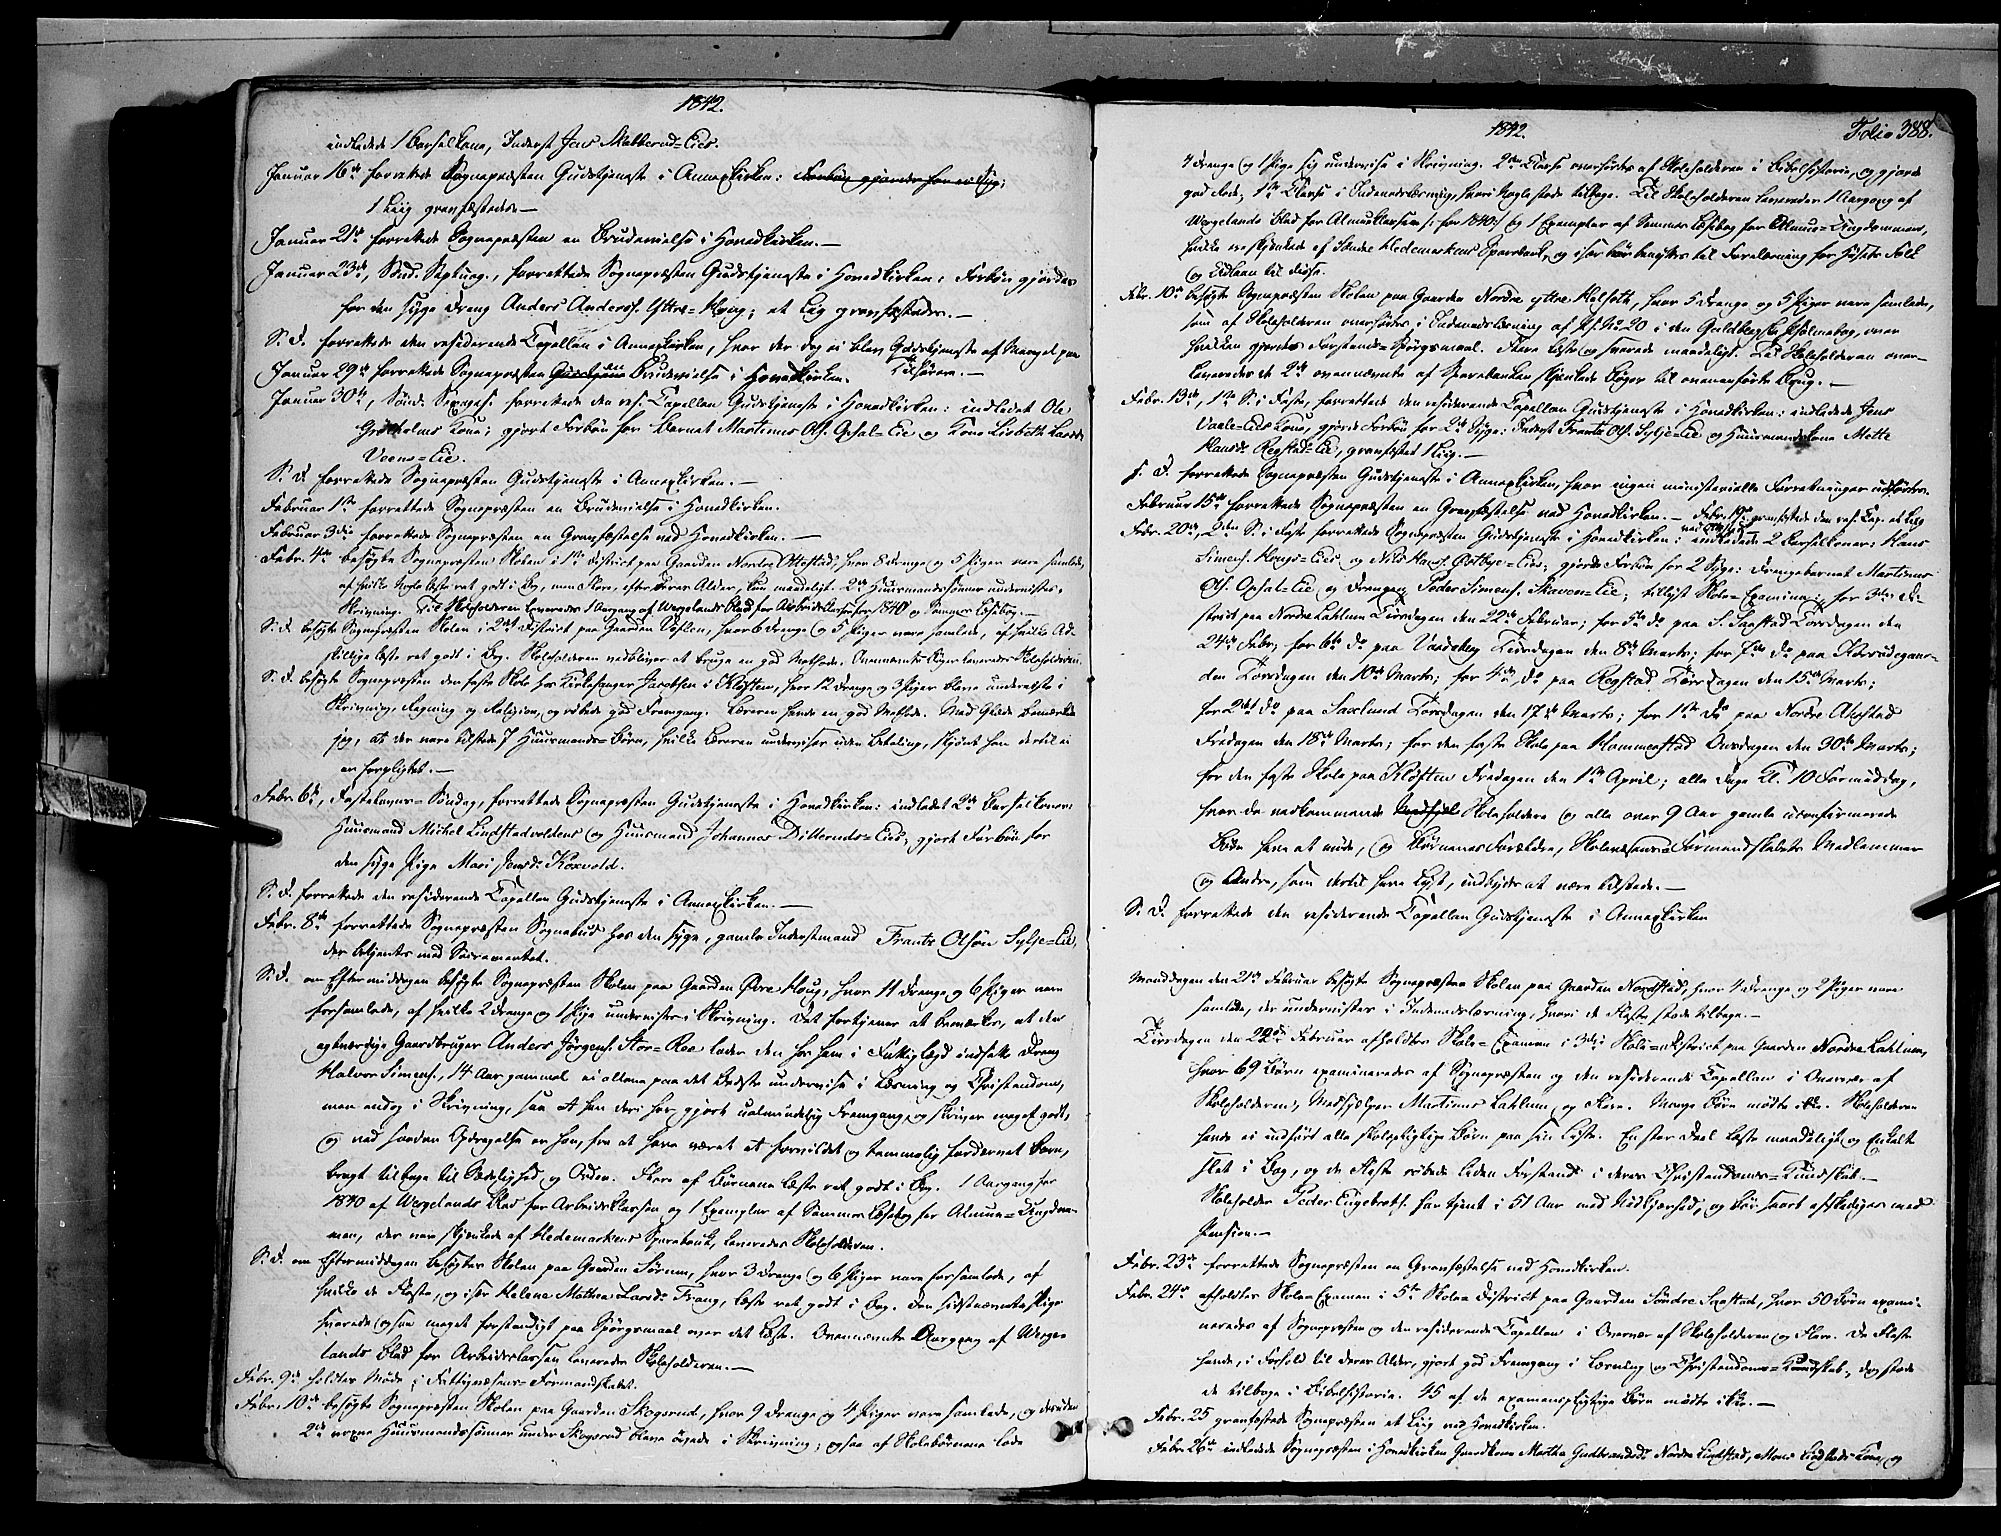 1842.
indledede 1 Barselkone, Inderst Jens Mælherud=Eies.
Januar 16de forrettede Sognepræsten Gudstjeneste i Annexkirken: Forbøn gjordes for en Syg;
1 Liig gravfæstedes.—
Januar 21de forrettede Sognepræsten en Brudevielse i Hovedkirken.—
Januar 23de, Sønd. Septuag., forrettede Sognepræsten Gudstjeneste i Hovedkirken: Forbøn gjordes
for den syge Dreng Anders Anderss. Yttre=Houg; et Liig gravfæstedes.—
S. D. forrettede den residerende Capellan i Annexkirken, hvor der dog ei blev Gudstjeneste af Mangel paa
Tilhørere.—
Januar 29de forrettede Sognepræsten Gudstjene Brudevielse i Hovedkirken.
Januar 30te, Sønd. Sexages. forrettede den res. Capellan Gudstjeneste i Hovedkirken: indledet Ole
Grøtholms Kone; gjort Forbøn for Barnet Martinus Ols. Opsal=Eie og Kone Lisbeth Larsd.
Veens=Eie.
S. D. forrettede Sognepræsten Gudstjeneste i Annexkirken.—
Februar 1ste forrettede Sognepræsten en Brudevielse i Hovedkirken.
Februar 3die forrettede Sognepræsten en Gravfæstelse ved Hovedkirken.—
Febr. 4de besøgte Sognepræsten Skolen i 1ste District paa Gaarden Nordre Ottestad, hvor 8 Drenge og 5 Piger vare samlede,
af hvilke Nogle læste ret godt i Bog, men Flere, efter deres Alder, kun maadeligt. 2de Huusmandssønner undervistes i
Skrivning. Til Skoleholderen leveredes 1 Aargang af Wergelands Blad for Arbeidsklassen for 1840 og Sømmes Læsebog.—
S. D. besøgte Sognepræsten Skolen i 2det District paa Gaarden Veslen, hvor 6 Drenge og 5 Piger vare samlede, af hvilke Ad-
skillige læste ret godt i Bog. Skoleholderen vedbliver at bruge en god Methode. Ovennævnte Bøger leveredes Skoleholderen.
S. D. besøgte Sognepræsten den faste Skole hos Kirkesanger Jacobsen i Kløften, hvor 12 Drenge og 3 Piger bleve underviste i
Skrivning, Regning og Religion, og røbede god Fremgang. Læreren havde en god Methode. Med Glæde bemærkede
jeg, at der vare tilstede 7 Huusmands=Børn, hvilke Læreren underviser uden Betaling, skjønt han dertil ei
er forpligtet.—
Febr. 6te, Fastelavns=Søndag, forrettede Sognepræsten Gudstjeneste i Hovedkirken: indledet 2de Barselkoner:
Huusmand Michel Lindstadvoldens og Huusmand Johannes Dillerud=Eies; gjort Forbøn for
den syge Pige Mari Jensd. Koxvold.
S. D. forrettede den residerende Capellan Gudstjeneste i Annexkirken.—
Febr. 8de forrettede Sognepræsten Sognebud hos den syge, gamle Inderstmand Frantz Olsøn Sylje=Eie,
der betjentes med Sacramentet.
S. D. om Eftermiddagen besøgte Sognepræsten Skolen paa Gaarden Øvre Houg, hvor 11 Drenge og 6 Piger vare
forsamlede, af hvilke 2 Drenge og 1 Pige undervistes i Skrivning. Det fortjener at bemærkes, at den
agtværdige Gaardbruger Anders Jørgens. Stor=Ree lader den hos ham i Fattiglægd indsatte Dreng
Halvor Simens., 14 Aar gammel ei allene paa det Bedste undervise i Læsning og Christendom,
men endog i Skrivning, saa at han deri har gjort ualmindelig Fremgang, og skriver meget godt,
og ved saadan Opdragelse er han, fra at have været et forvildet og temmelig fordærvet Barn,
bragt tilbage til Sædelighed og Orden. Flere af Børnene læste ret godt i Bog. 1 Aargang for
1840 af Wergelands Blad for Arbeidsklassen og 1 Exemplar af Sømmes Læsebog for Almue=Ungdom-
men, der vare skjenkede af Hedemarkens Sparebank, leveredes Skoleholderen.
S. D. om Eftermiddagen besøgtes Skolen paa Gaarden Sørum, hvor 3 Drenge og 6 Piger vare forsamlede, af
hvilke de Fleste, og især Helene Mathea Larsd. Frang, læste ret godt i Bog. Den sidstnævnte Pige
svarede ogsaa meget forstandigt paa Spørgsmaal over det Læste. Ovennævnte Aargang af Werge-
lands Blad for Arbeidsklassen leveredes Skoleholderen.—
Febr. 9de holdtes Møde i Fattigvæsens=Formandskabet.
Febr. 10de besøgte Sognepræsten Skolen paa Gaarden Skogsrud, hvor 9 Drenge og 4 Piger vare samlede, og desuden
2de voxne Huusmandssønner under Skogsrud bleve øvede i Skrivning; ogsaa af Skolebørnene lode
1842.
Folio 388.
7 Drenge og 1 Pige sig undervise i Skrivning. 2den Classe overhørtes af Skoleholderen i Bibelhistorie, og gjorde
god Rede; 1ste Classe i Indenadslæsning, hvori Nogle stode tilbage. Til Skoleholderen leveredes 1 Aargang af
Wergelands Blad for Almueklassen /: for 1840 :/ og 1 Exemplar af Sømmes Læsebog for Almue=Ungdommen,
hvilke ere skjenkede af Søndre Hedemarkens Sparebank, og især bør benyttes til Forelæsning for Husets Folk
og Udlaan til disse.
Febr. 10de besøgte Sognepræsten Skolen paa Gaarden Nordre yttre Kelseth, hvor 5 Drenge og 5 Piger vare samlede,
som af Skoleholderen overhørtes i Indenadslæsning af Ps. No 20 i den Guldbergske Psalmebog, over
hvilken gjordes Forstands=Spørgsmaal. Flere læste og svarede maadeligt. Til Skoleholderen over-
leveredes de 2de ovennævnte af Sparebanken skjenkede Bøger til ovenanførte Brug.—
Febr. 13de, 1ste S. i Faste, forrettede den residerende Capellan Gudstjeneste i Hovedkirken: indledede Jens
Vaale=Eies Kone, gjorde Forbøn for 2de Syge: Inderst Frantz Ols. Sylje=Eie og Huusmandskone Mette
Hansd. Regstad=Eie, gravfæstet 1 Liig.—
S. D. forrettede Sognepræsten Gudstjeneste i Annexkirken, hvor ingen ministerielle Forretninger udførtes.
Februar 15de forrettede Sognepræsten en Gravfæstelse ved Hovedkirken.— Febr. 19de gravfæstede den res. Cap. et Liig
ved Ottestad.—
Febr. 20de, 2den S. i Faste forrettede Sognepræsten Gudstjeneste i Hovedkirken: indledede 2 Barselkoner: Hans
Simens. Hougs=Eies og Nils Hans. Østbye=Eies; gjorde Forbøn for 2 Syge: Drengebarnet Martinus
Ols. Opsal=Eie og Drengen Peder Simens. Skaven=Eie; tillyst Skole=Examina: for 3die Di-
strict paa Nordre Lahlum Tirsdagen den 22de Februar; for 5te Do paa S. Saastad Torsdagen den
24de Febr; for 6te Do paa Vaadeberg Tirsdagen den 8de Marts; for 7de Do paa Korsødegaar-
den Torsdagen den 10de Marts; for 4de Do paa Regstad Tirsdagen den 15de Marts;
for 2det Do paa Saxlund Torsdagen den 17de Marts; for 1ste Do paa Nordre Akestad
Fredagen den 18de Marts; for den faste Skole paa Hommerstad Onsdagen den 30te Marts;
for den faste Skole paa Kløften Fredagen den 1ste April; alle Dage Kl. 10 Formiddag,
hvor de vedkommende Medhjel Skoleholdere og alle over 9 Aar gamle uconfirmerede
Børn have at møde, og Børnenes Forældre, Skolevæsens=Formandskabets Medlemmer
og Andre, som dertil have Lyst, indbydes at være tilstede.—
S. D. forrettede den residerende Capellan Gudstjeneste i Annexkirken
Manddagen den 21de Februar besøgte Sognepræsten Skolen paa Gaarden Nordstad, hvor 4 Drenge og 2 Piger vare
samlede, der undervistes i Indenadslæsning, hvori de Fleste stode tilbage.—
Tirsdagen den 22de Februar afholdtes Skole=Examen i 3die Skole=District paa Gaarden Nordre Lahlum,
hvor 69 Børn examineredes af Sognepræsten og den residerende Capellan i Overvær af
Skoleholderen, Medhjelper Martinus Lahlum og Flere. Mange Børn mødte ikke. Skoleholderen
havde ei anført alle skolepligtige Børn paa sin Liste. En stor Deel læste maadeligt og Enkelte
slet i Bog, og de Fleste røbede liden Forstand i deres Christendoms=Kundskab.—
Skoleholder Peder Engebrets. har tjent i 51 Aar med Nidkjærhed, og bør snart afskediges med
Pension.—
Febr. 23de forrettede Sognepræsten en Gravfæstelse ved Hovedkirken.
Febr. 24de afholdtes Skole=Examen i 5te Skole District paa Gaarden Søndre Saastad, hvor 50 Børn exami-
neredes af Sognepræsten og den residerende Capellan i Overvær af Skoleholderen og Flere. De Fleste
havde, i Forhold til deres Alder, gjort god Fremgang i Læsning og Christendoms=Kundskab, dog stode
de tilbage i Bibelhistorie. 45 af de examenspligtige Børn mødte ikke.—
Febr. 25 gravfæstede Sognepræsten et Liig ved Hovedkirken.
Febr. 26de indledede Sognepræsten i Hovedkirken Gaardkone Marthe Gudbrandsd. Nordre Lindstad, Mons Lindstads Kone, og